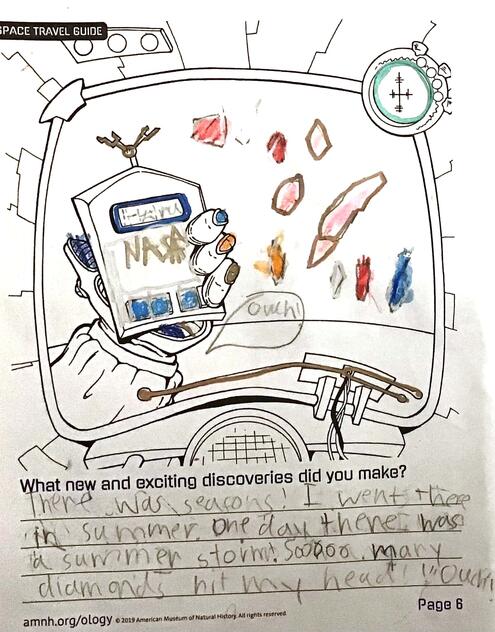 SPACE TRAVEL GUIDE
NASA
Ouch!
What new and exciting discoveries did you make?
There was seasons! I went there
in summer. One day there was
a summer storm! Sooooo many
diamonds hit my head! "Ouch!
amnh.org/ology © 2019 American Museum of Natural History. All rights reserved.
Page 6